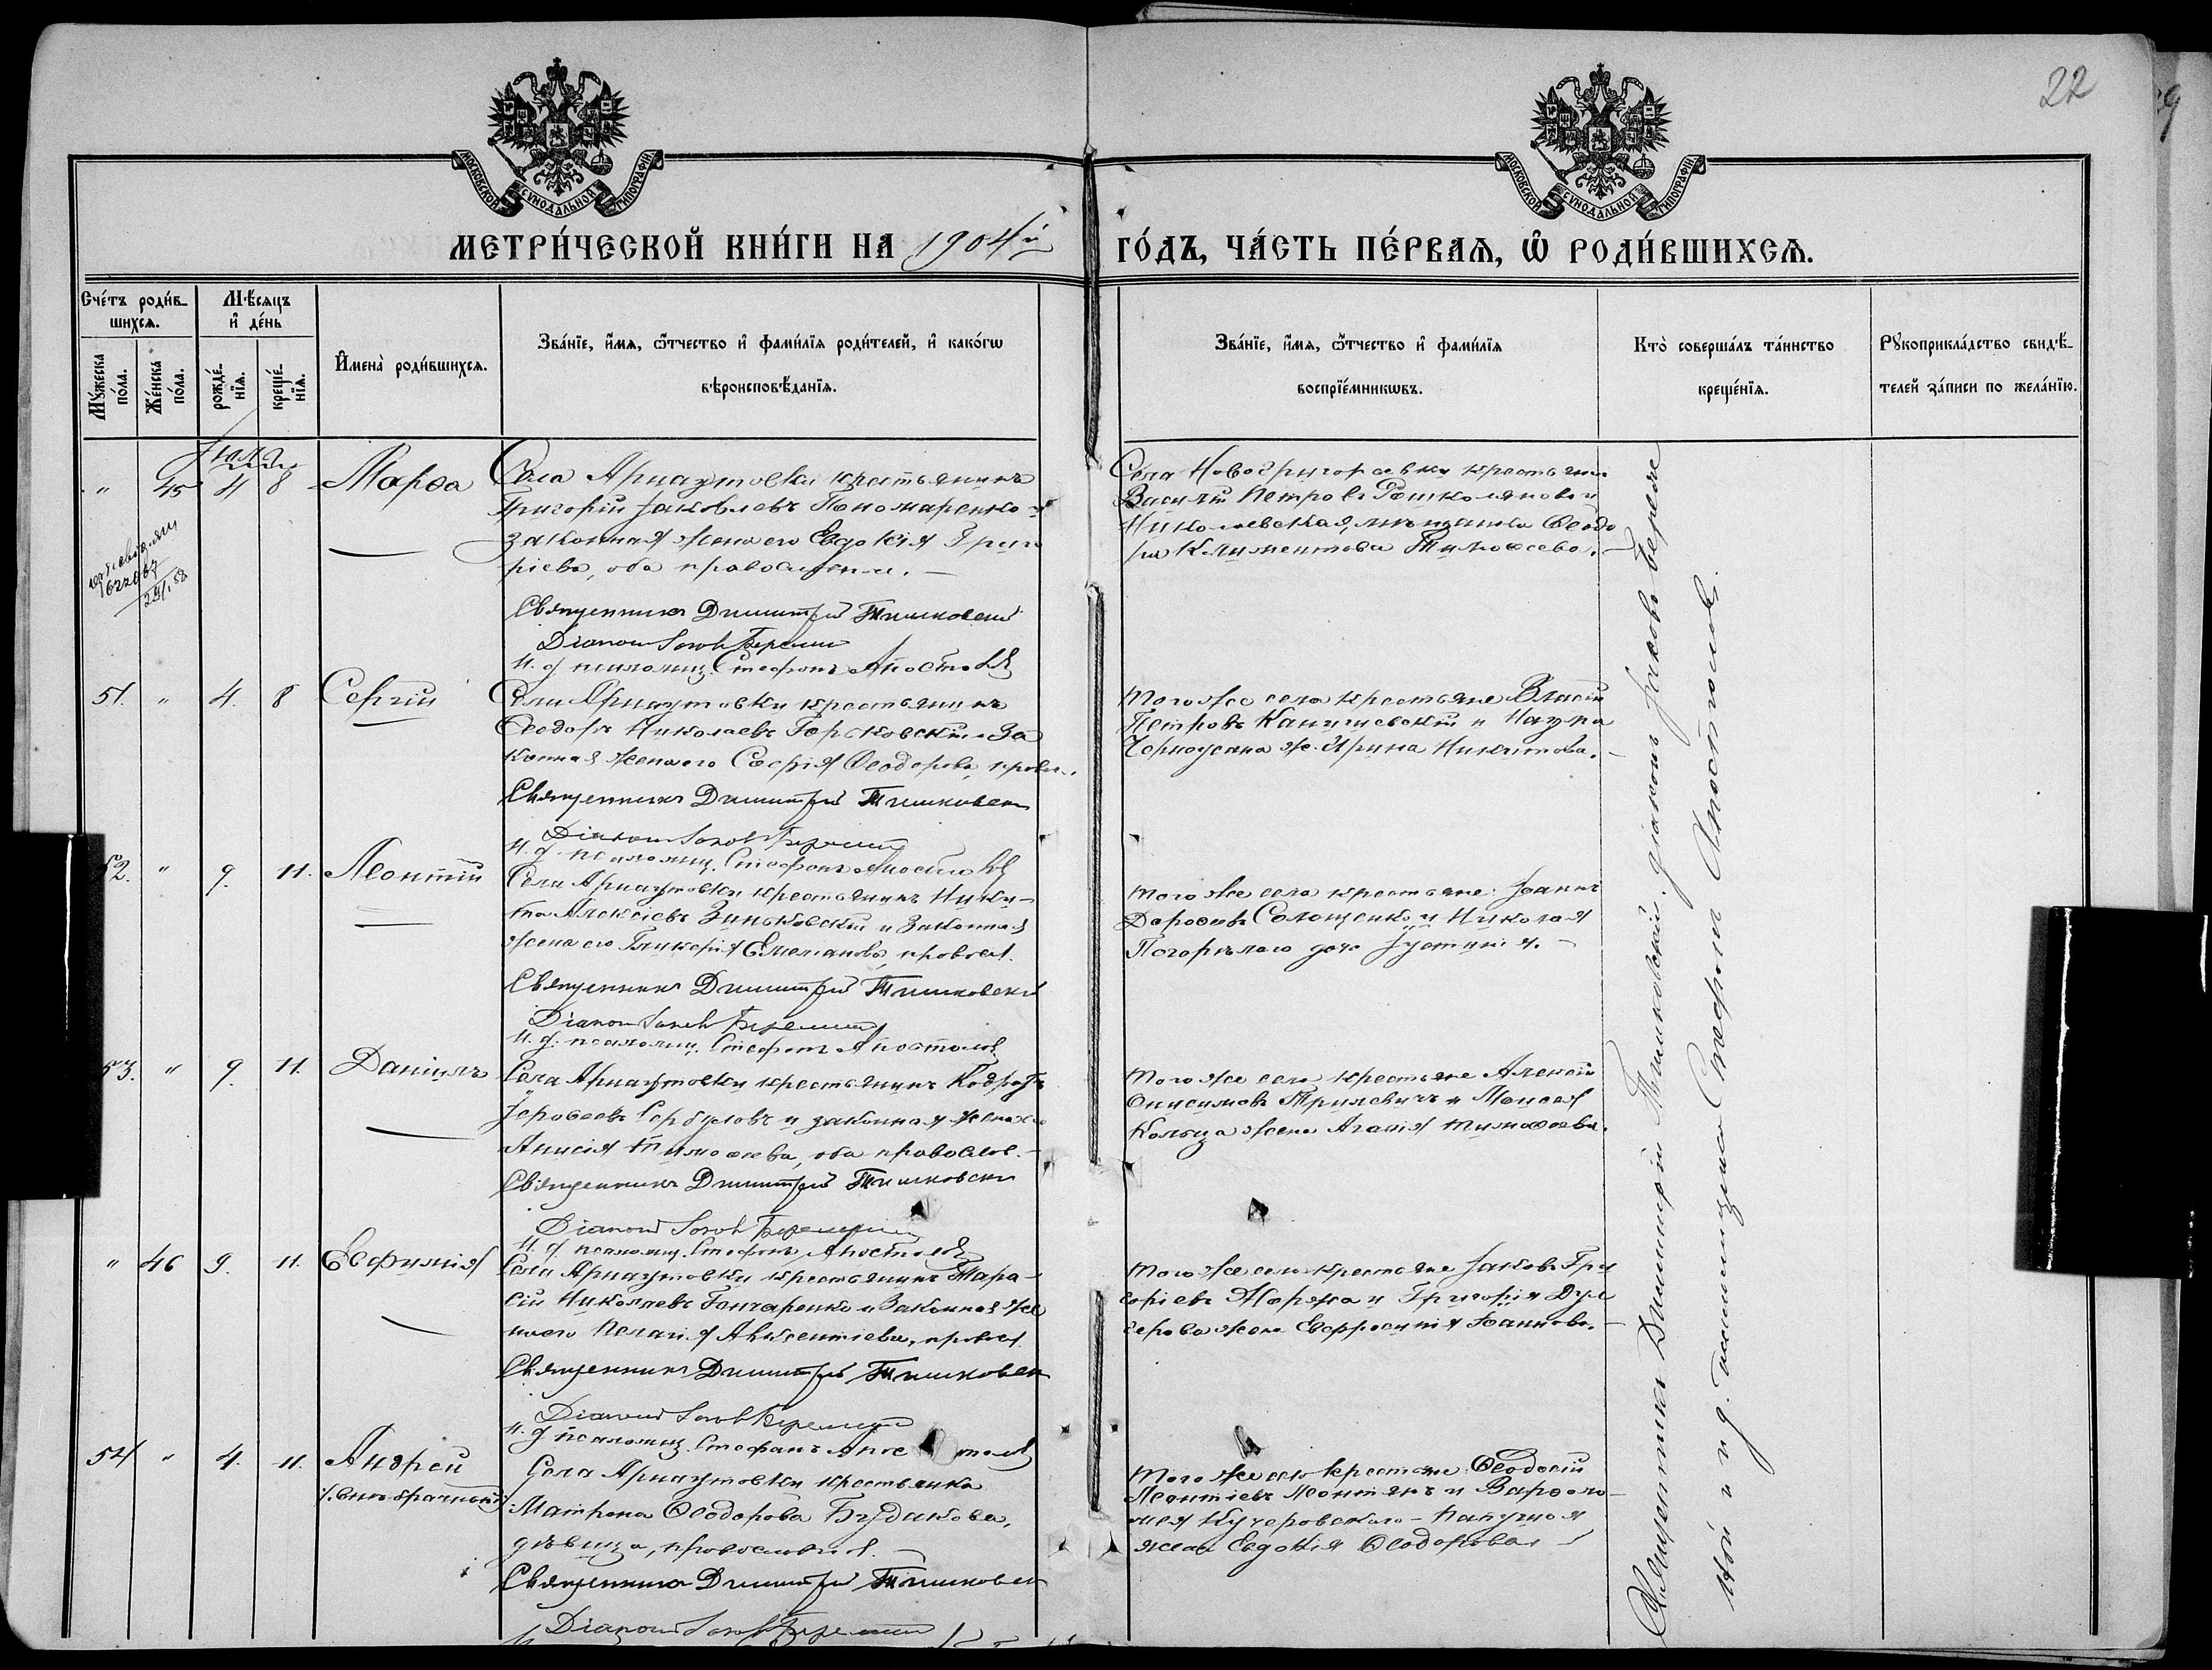 22
МОСКОВСКОЙ СѴНОДАЛЬНОЙ ТИПОГРАФІИ
МОСКОВСКОЙ СѴНОДАЛЬНОЙ ТИПОГРАФІИ
МЕТРИ́ЧЕСКОЙ КНИ́ГИ НА 1904й ГО́ДЪ, ЧА́СТЬ ПЕ́РВАѦ, Ѽ РОДИ́ВШИХСѦ.
Сче́тъ роди́в-
шихсѧ.
Мꙋ́жеска по́ла.
Же́нска по́ла.
Мѣ́сяцъ
и҆ де́нь
рожде́-
нїѧ.
креще́-
нїѧ.
И҆мена̀ роди́вшихсѧ.
Зва́нїе, и҆́мѧ, ѻ҆́тчество и҆ фами́лїѧ роди́телей, и҆ како́гѡ
вѣроисповѣ́данїѧ.
Зва́нїе, и҆́мѧ, ѻ҆́тчество и҆ фами́лїѧ
воспрїе́мникѡвъ.
Кто̀ соверша́лъ та́инство
креще́нїѧ.
Рꙋкоприкла́дство свидѣ́-
телей за́писи по жела́нїю.
" 45 4 8 Марѳа
Села Арнаутовки крестьянинъ
Григорій Іаковлевъ Пономаренко и
законная жена его Евдокія Григо
ріева, оба православные.
Священникъ Димитрій Тишковскій
Діаконъ Іаковъ
И. д. псаломщ. Стефанъ Апостоловъ
Села Новогригорьевки крестьянинъ
Василій Петровъ и
Николаевская, мѣщанка Ѳеодо
ра Климентова Тимоѳеева.
51. " 4. 8 Сергій
Села Арнаутовки крестьянинъ
Ѳеодоръ Николаевъ Горьковскій и за
конная жена его Софія Ѳеодорова, правосл.
Священникъ Димитрій Тишковскій
Діаконъ Іаковъ
И. д. псаломщ. Стефанъ Апостоловъ
Того же села крестьяне Власій
Петровъ и Наума
Черноусана ж. Ирина Никитова.
52. " 9. 11. Леонтій
Села Арнаутовки крестьянинъ Ники-
та Алексіевъ Зиньковскій и законная
жена его Гликерія Емельянова, правосл.
Священникъ Димитрій Тишковскій
Діаконъ Іаковъ
И. д. псаломщ. Стефанъ Апостоловъ
Того же села крестьяне: Іоаннъ
Дороѳеевъ Солощенко и Николая
Погорѣлаго дочь Іустинія.
53. " 9. 11. Даніилъ
Села Арнаутовки крестьянинъ Кодратъ
Іероѳеевъ Сербуловъ и законная жена его
Анисія Тимоѳеева, оба правослов.
Священникъ Димитрій Тишковскій
Діаконъ Іаковъ
И. д. псаломщ. Стефанъ Апостоловъ
Того же села крестьяне Алексій
Онисимовъ и Моисея
Кольца жена Агаѳія Тимоѳеева.
" 46 9. 11. Евфимія
Села Арнаутовки крестьянинъ Тара-
сій Николаевъ Гончаренко и законная же
на его Пелагія Авксентіева, правосл.
Священникъ Димитрій Тишковскій
Діаконъ Іаковъ
И. д. псаломщ. Стефанъ Апостоловъ
Того же села крестьяне Іаковъ Гри
горіевъ и Григорія
жена Евфросинія Іоаннова.
54 " 4. 11. Андрей
/. внѣбрачный
Села Арнаутовки крестьянка
Матрона Ѳеодорова Будикова,
дѣвица, православная.
Священникъ Димитрій Тишковскій
Діаконъ Іаковъ
Того же села крестьяне: Ѳеодосій
Леонтіевъ и Варѳоло-
мея Кучеровскаго
жена Евдокія Ѳеодорова
Священникъ Димитрій Тишковскій, діаконъ Іаковъ
и и. д. псаломщика Стефанъ Апостоловъ.